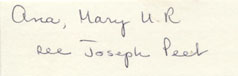 Ana, Mary U.R
see Joseph Peet